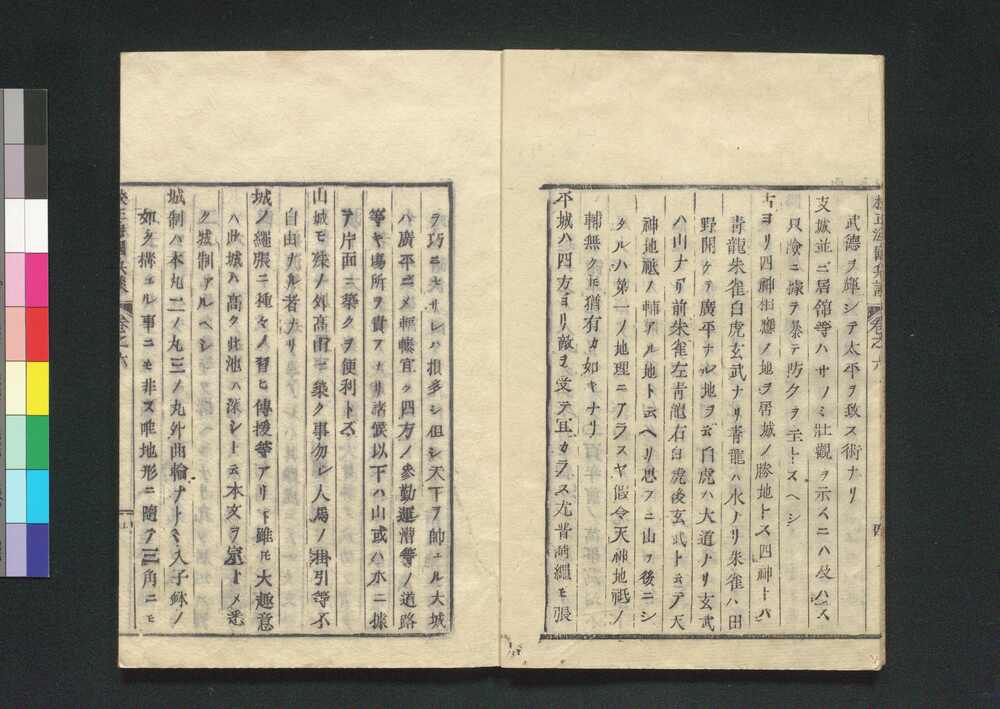 武德ヲ輝シテ太平ヲ致ス術ナリ
支城並ニ居館等ハサノミ壯觀ヲ示スニハ及ハス
只險ニ據ヲ暴テ防クヲ主トスヘシ
古ヨリ四神相應ノ地ヲ居城ノ勝地トス四神トハ
靑龍朱雀白虎玄武ナリ靑龍ハ水ナリ朱雀ハ田
野開ケテ廣平ナル地ヲ云白虎ハ大道ナリ玄武
ハ山ナリ前朱雀左靑龍右白虎後玄武ト云テ天
神地祗ノ輔アル地ト云ヘリ思フニ山ヲ後ニシ
タルハ第一ノ地理ニアラスヤ假令天神地祗ノ
輔無クモ猶有カ如キナリ
平城ハ四方ヨリ敵ヲ受テ宜カラス尤昔繩モ張
ヲ巧ニナサレハ損多シ但シ天下ヲ帥ユル大城
ハ廣平ニメ輻輳宜ク四方ノ參勤運漕等ノ道路
等キ塲所ヲ貴スナリ諸侯以下ハ山或ハ水ニ據
ヲ片面ニ築クヲ便利トス
山城モ殊ノ外高山ニ築ク事勿レ人馬ノ掛引等不
自由ナル者ナリ
城ノ繩張ニ種々ノ習ヒ傳授等アリト雖モ大趣意
ハ此城ハ高ク此池ハ深シト云本文ヲ定トメ悉
ク城制アルヘシ
城制ハ本丸二ノ丸三ノ丸外曲輪ナトヽ入子鉢ノ
如ク構ユル事ニモ非ズ唯地形ニ隨テ三角ニモ
卷之六
四